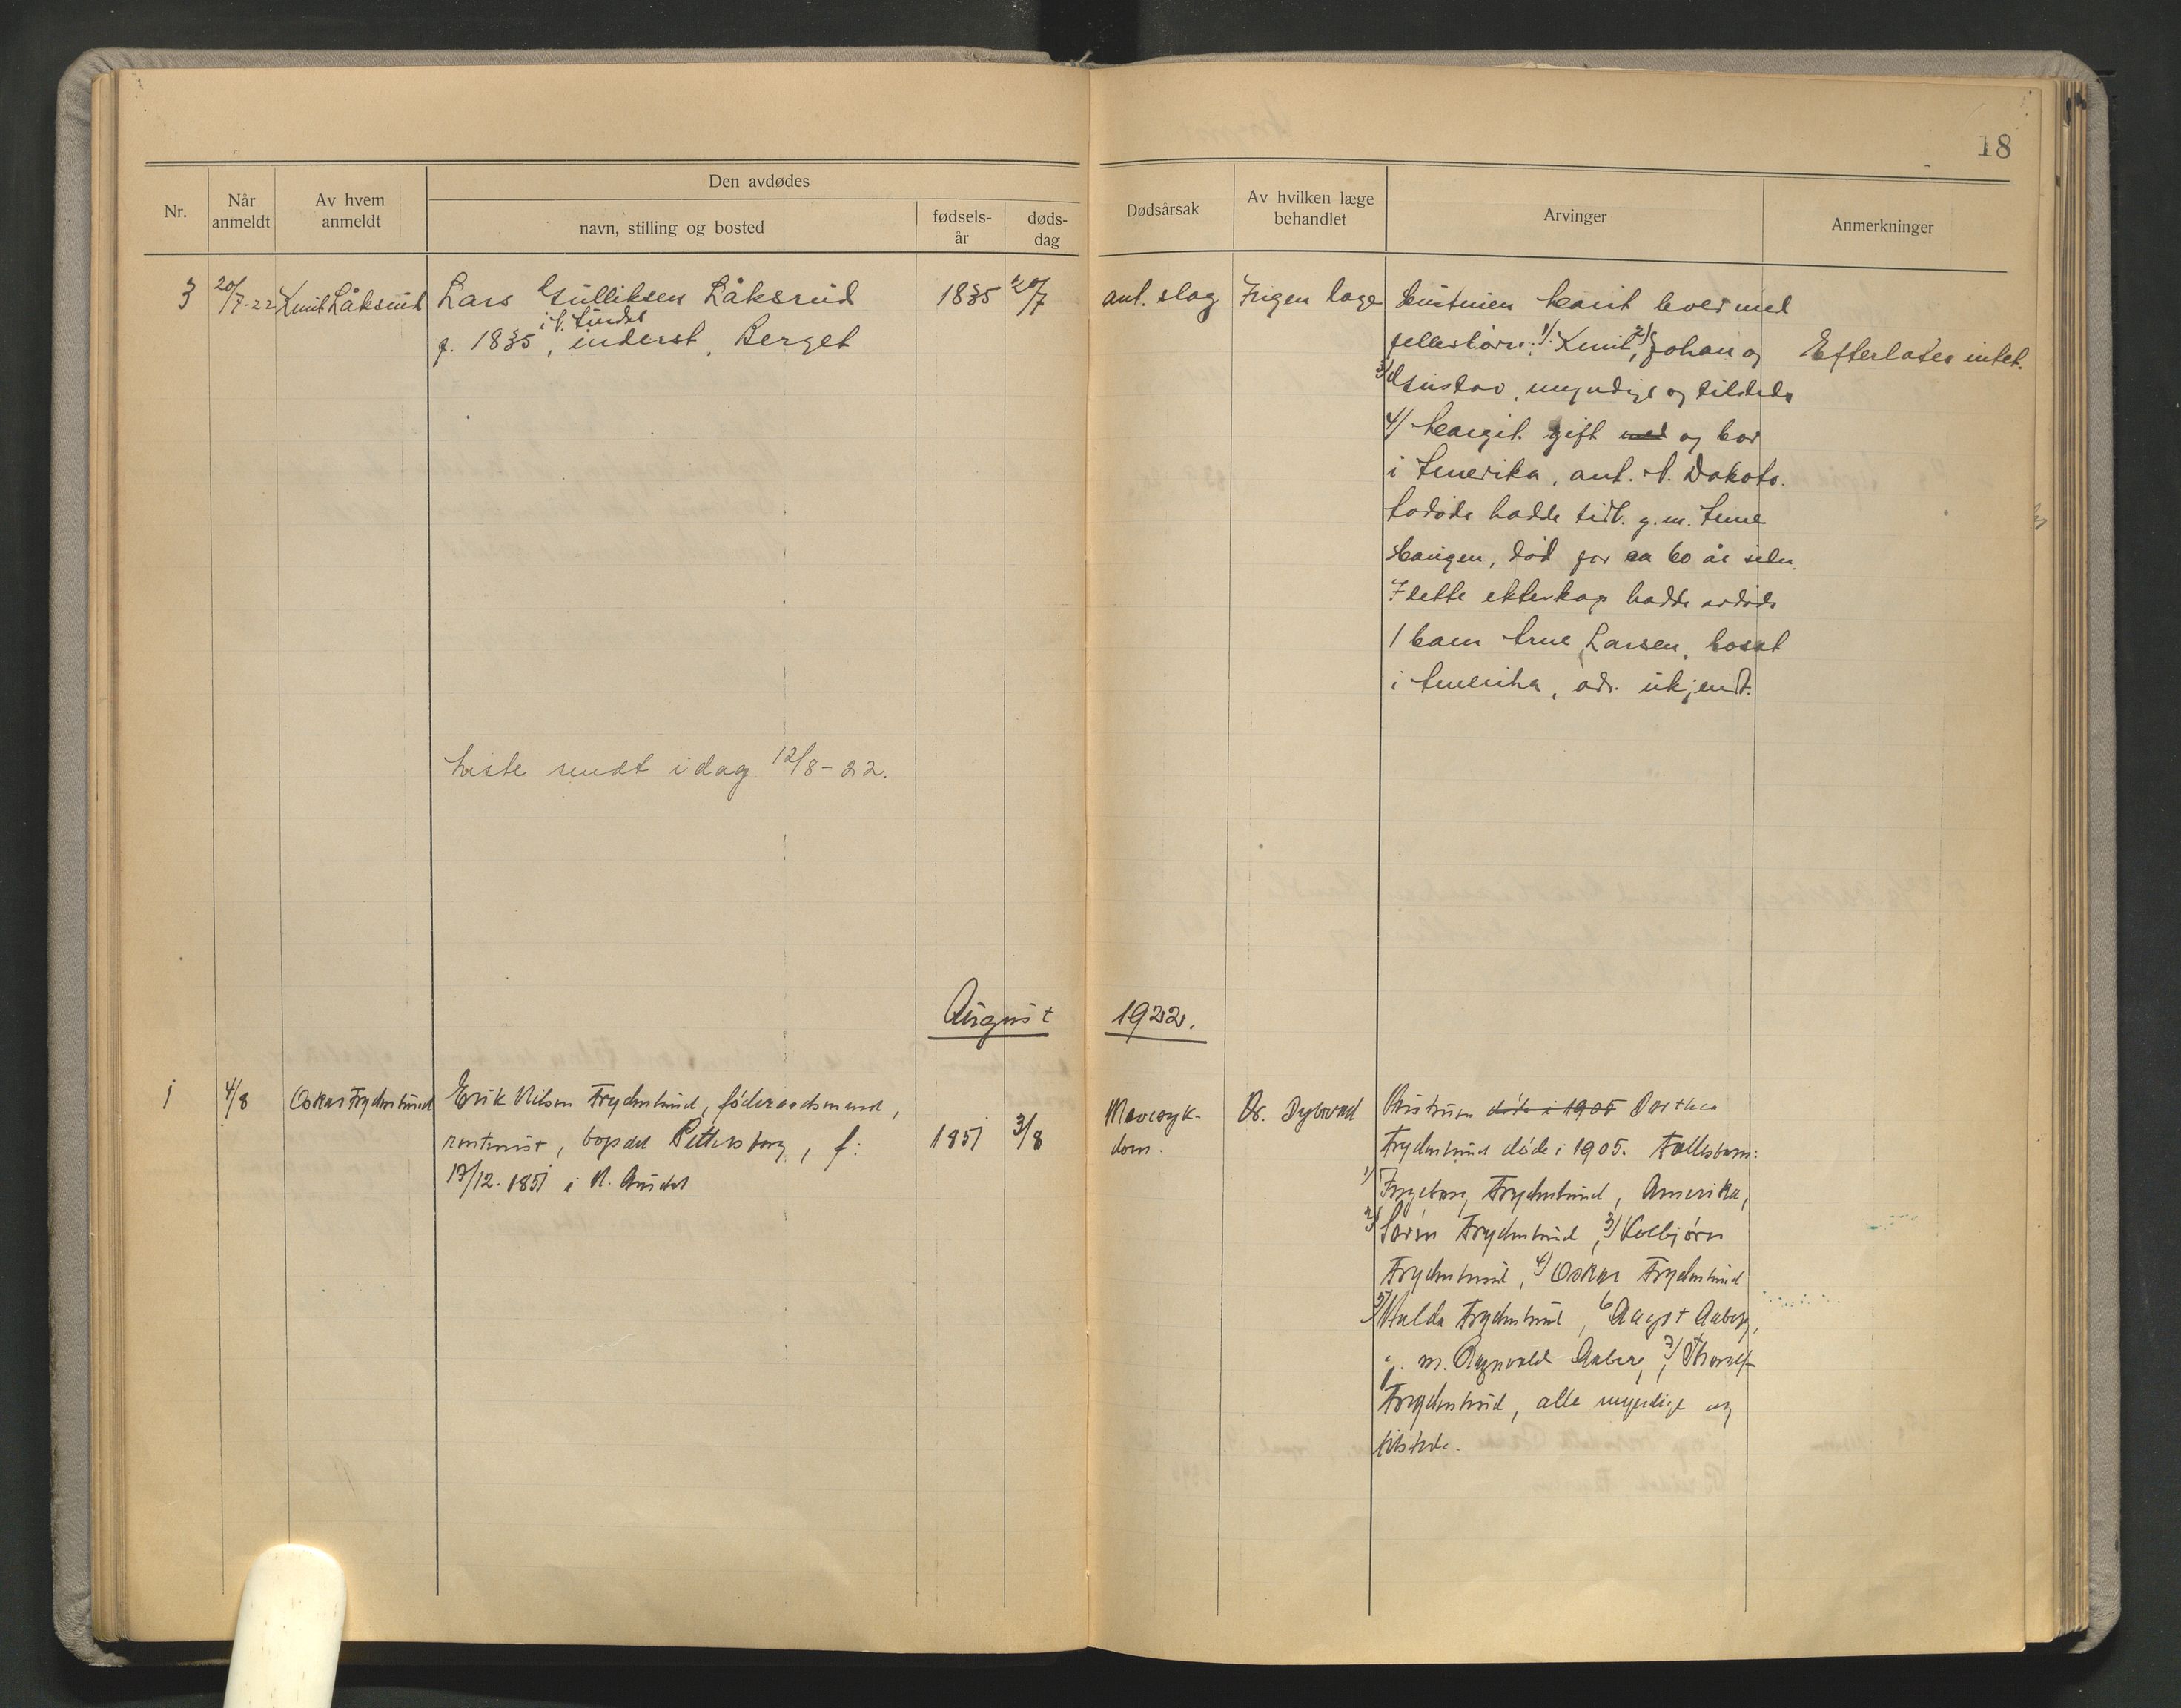 18
Nr.
Når
anmeldt
Av hvem
anmeldt
Den avdødes
navn, stilling og bosted
fødsels-
år
døds-
dag
Dødsårsak
Av hvilken læge
behandlet
Arvinger
Anmerkninger
3
20/7-22
Knut Låksrud
Lars Gulliksen Låksrud
f. 1835 i N. Aurdal, inderst, Berget
1835
20/7
ant. slag
Ingen læge
Enstruen Marit lever med
fellesbarn: 1/ Knut, 2/ Johan og
3/ Gustav, myndige og tilstede
4/ Margit gift med og bor
i Amerika, ant. N. Dakota.
Avdøde hadde tidl. g. m. Anne
Haugen, død for ca 60 år siden.
I dette ekteskap hadde avdøde
1 barn Arne Larsen, bosat
i Amerika, adr. ukjendt.
Efterlates intet.
Liste sendt idag 12/8-22.
August 1922.
1
4/8
Oskar Frydenlund
Erik Nilsen Frydenlund, føderaadsmand,
enkemand, bopæl Pettersborg, f:
17/12-1851 i N. Aurdal
1851
3/8
Mavesyk-
dom.
Dr. Dybwad
Hustruen døde i 1905 Dorthea
Frydenlund døde i 1905. Fællesbarn:
1/ Ingeborg Frydenlund, Amerika,
2/ Søren Frydenlund, 3/ Kolbjørn
Frydenlund, 4/ Oskar Frydenlund
5/ Hulda Frydenlund, 6 Aagot Aaberg,
g. m. Ragnvald Aaberg, 7/ Thoralf
Frydenlund, alle myndige og
tilstede.